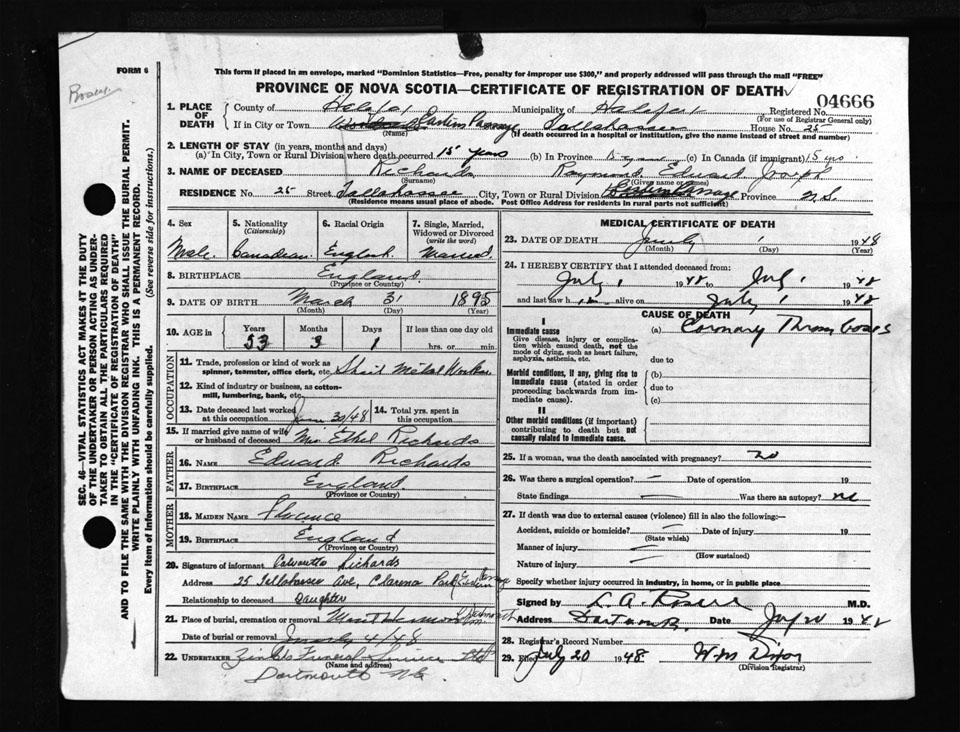 FORM 6
This form if placed in an envelope, marked "Dominion Statistics—Free, penalty for improper use $300," and properly addressed will pass through the mail "FREE"
PROVINCE OF NOVA SCOTIA—CERTIFICATE OF REGISTRATION OF DEATH
04666
1. PLACE OF DEATH
County of Halifax Municipality of Halifax Registered No.
(For use of Registrar General only)
If in City or Town Eastern Passage Tallahassee House No. 25
(Name) (If death occurred in a hospital or institution, give the name instead of street and number)
2. LENGTH OF STAY (in years, months and days)
(a) In City, Town or Rural Division where death occurred 15 years (b) In Province 15 years (c) In Canada (if immigrant) 15 yrs.
3. NAME OF DECEASED Richards Raymond Edward Joseph
(Surname) (Given name or names)
RESIDENCE No. 25 Street Tallahassee City, Town or Rural Division Eastern Passage Province N.S.
(Residence means usual place of abode. Post Office Address for residents in rural parts not sufficient)
4. Sex
Male
5. Nationality
(Citizenship)
Canadian
6. Racial Origin
English
7. Single, Married, Widowed or Divorced
(write the word)
Married
8. BIRTHPLACE England
(Province or Country)
9. DATE OF BIRTH March 31 1895
(Month) (Day) (Year)
10. AGE in
Years Months Days If less than one day old
53 3 1 hrs. or min.
OCCUPATION
11. Trade, profession or kind of work as spinner, teamster, office clerk, etc. Sheet Metal Worker
12. Kind of industry or business, as cotton-mill, lumbering, bank, etc.
13. Date deceased last worked at this occupation June 30/48
14. Total yrs. spent in this occupation
15. If married give name of wife or husband of deceased Mrs. Ethel Richards
FATHER
16. NAME Edward Richards
17. BIRTHPLACE England
(Province or Country)
MOTHER
18. MAIDEN NAME Florence
19. BIRTHPLACE England
(Province or Country)
20. Signature of informant Richards
Address 25 Tallahassee Ave, Clarence Park Eastern Passage
Relationship to deceased Daughter
21. Place of burial, cremation or removal Mount Hermon Dartmouth
Date of burial or removal July 4/48
22. UNDERTAKER Funeral Service Ltd
(Name and address)
Dartmouth N.S.
MEDICAL CERTIFICATE OF DEATH
23. DATE OF DEATH July 1 1948
(Month) (Day) (Year)
24. I HEREBY CERTIFY that I attended deceased from:
July 1 1948 to July 1 1948
and last saw him alive on July 1 1948
CAUSE OF DEATH
I
Immediate cause
Give disease, injury or complication which caused death, not the mode of dying, such as heart failure, asphyxia, asthenia, etc.
(a) Coronary Thrombosis
due to
Morbid conditions, if any, giving rise to immediate cause (stated in order proceeding backwards from immediate cause).
(b)
due to
(c)
II
Other morbid conditions (if important) contributing to death but not causally related to immediate cause.
25. If a woman, was the death associated with pregnancy? no
26. Was there a surgical operation? — Date of operation 19
State findings — Was there autopsy? no
27. If death was due to external causes (violence) fill in also the following:—
Accident, suicide or homicide? — Date of injury 19
(State which)
Manner of injury —
(How sustained)
Nature of injury —
Specify whether injury occurred in industry, in home, or in public place
Signed by L. A. M.D.
Address Dartmouth Date July 20 1948
28. Registrar's Record Number
29. Filed July 20 1948 W.M. Dixon
(Division Registrar)
SEC. 46—VITAL STATISTICS ACT MAKES IT THE DUTY
OF THE UNDERTAKER OR PERSON ACTING AS UNDER-
TAKER TO OBTAIN ALL THE PARTICULARS REQUIRED
IN THE "CERTIFICATE OF REGISTRATION OF DEATH"
AND TO FILE THE SAME WITH THE DIVISION REGISTRAR WHO SHALL ISSUE THE BURIAL PERMIT.
WRITE PLAINLY WITH UNFADING INK. THIS IS A PERMANENT RECORD.
Every item of information should be carefully supplied. (See reverse side for instructions.)